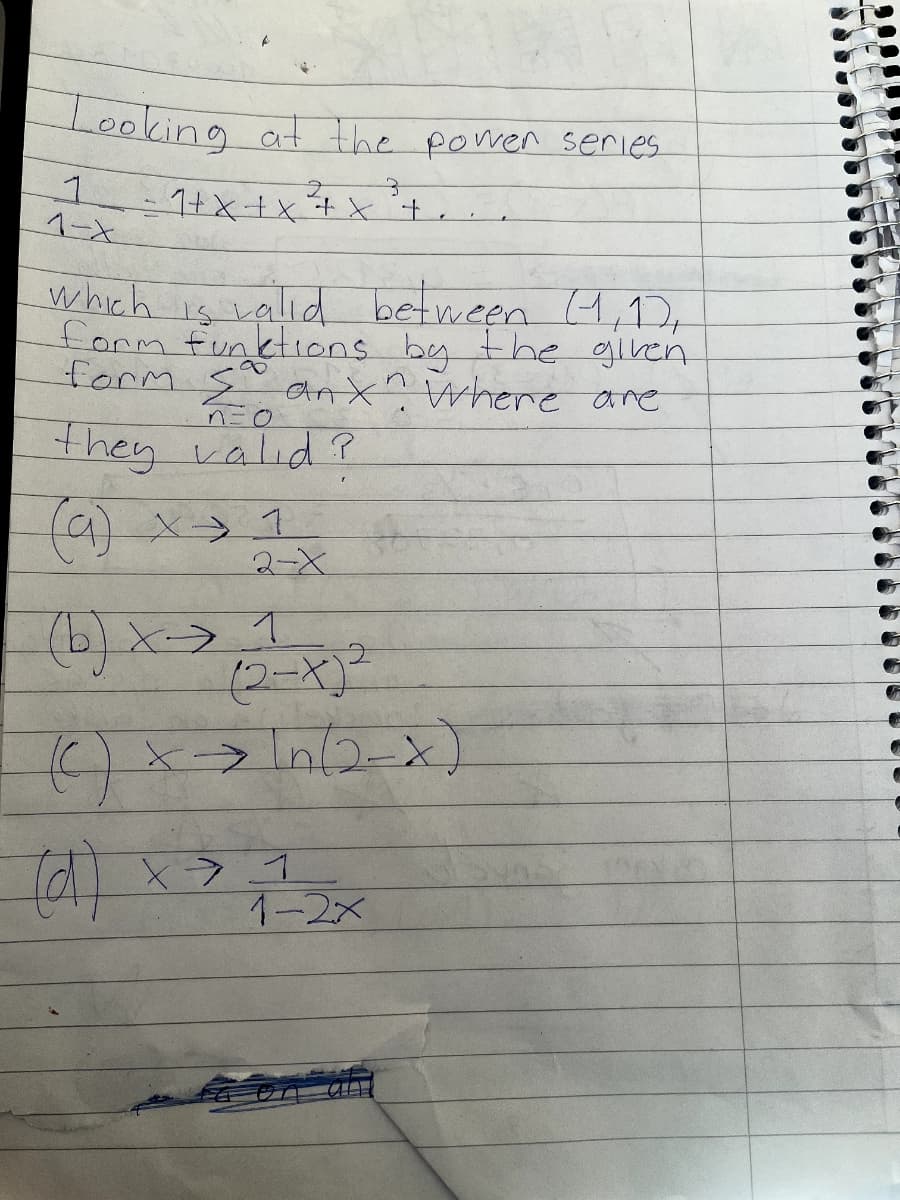 Looking at the power series
1/(1-x) = 1+x+x²+x³+....
which is valid between (-1,1),
form funktions by the given
form ∑_{n=0}^{∞} anxⁿ. Where are
they valid?
(a) x→ 1/(2-x)
(b) x→ 1/(2-x)²
(c) x→ ln(2-x)
(d) x→ 1/(1-2x)